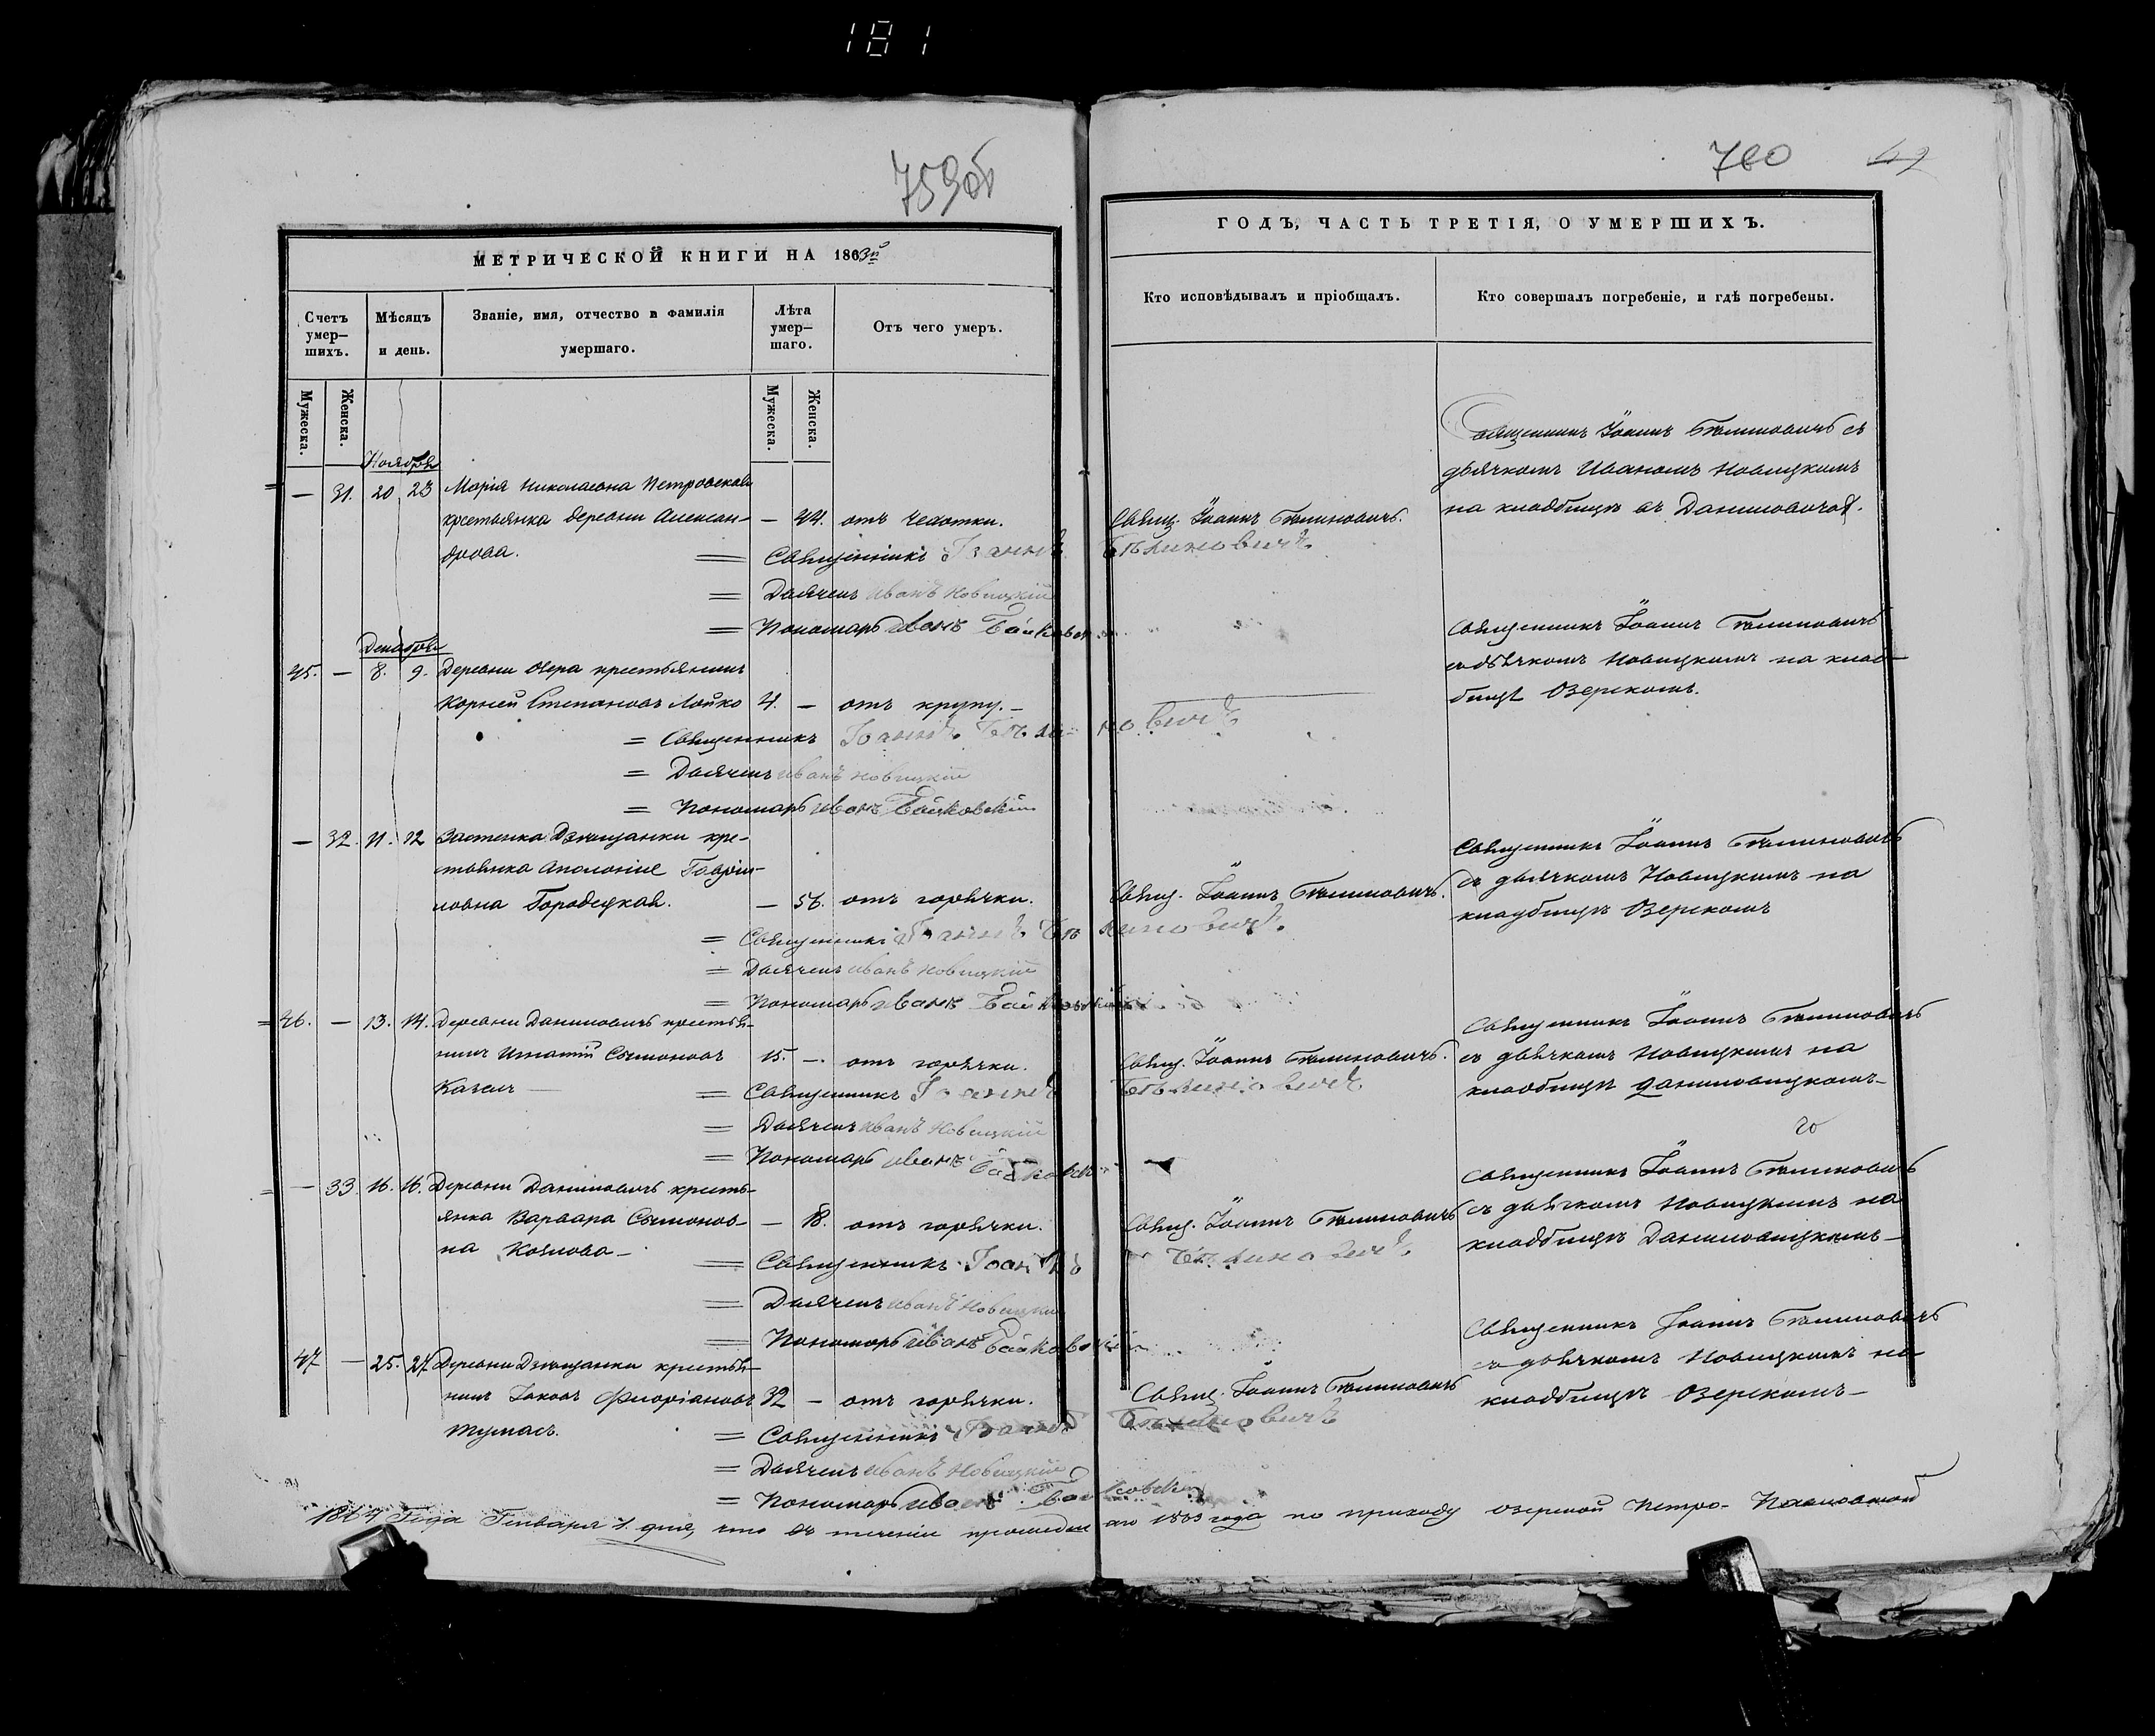 181
759об
760
МЕТРИЧЕСКОЙ КНИГИ НА 1863й
Счетъ умер–шихъ.
Мѣсяцъ и день.
Званіе, имя, отчество и фамилія умершаго.
Лѣта умер–шаго.
Отъ чего умеръ.
Мужеска.
Женска.
Мужеска.
Женска.
Ноября
— 31. 20 23 Марія Николаевна Петровская
крестьянка деревни Алексан– — 44. отъ чахотки.
дрова. = Священникъ Іоаннъ Бѣлиновичъ
= Дьячекъ Иванъ Новицкій
= Пономарь Иванъ
Декабря
45. — 8. 9. Деревни Озера крестьянинъ
Корней Степановъ Лойко 4. — отъ крупу.–
= Священникъ Іоаннъ Бѣлиновичъ
= Дьячекъ Иванъ Новицкій
= Пономарь Иванъ
— 32. 11. 12 Застенка кре–
стьянка Аполонія Гаврі–
ловна Городецкая. — 56. отъ горячки.
= Священникъ Іоаннъ Бѣлиновичъ
= Дьячекъ Иванъ Новицкій
= Пономарь Иванъ
46. — 13. 14. Деревни Даниловичъ крестья–
нинъ Игнатій Сымоновъ 15. —. отъ горячки.
= Священникъ Іоаннъ Бѣлиновичъ
= Дьячекъ Иванъ Новицкій
= Пономарь Иванъ
— 33 16. 16. Деревни Даниловичъ кресть–
янка Варвара Сымонов– — 18. отъ горячки.
на = Священникъ Іоаннъ Бѣлиновичъ
= Дьячекъ Иванъ Новицкій
= Пономарь Иванъ
47 — 25. 27 Деревни крестья–
нинъ Іаковъ Флоріановъ 32 — отъ горячки.
= Священникъ Іоаннъ Бѣлиновичъ
= Дьячекъ Иванъ Новицкій
= Пономарь Иванъ
ГОДЪ, ЧАСТЬ ТРЕТІЯ, О УМЕРШИХЪ.
Кто исповѣдывалъ и пріобщалъ.
Кто совершалъ погребеніе, и гдѣ погребены.
Священникъ Іоаннъ Бѣлиновичъ съ
дьячкомъ Иваномъ Новицкимъ
Свящ. Іоаннъ Бѣлиновичъ.
на кладбищѣ въ Даниловичахъ.
Священникъ Іоаннъ Бѣлиновичъ
съ дьячкомъ Новицкимъ на клад–
бищѣ Озерскомъ.
Священникъ Іоаннъ Бѣлиновичъ
Свящ. Іоаннъ Бѣлиновичъ.
съ дьячкомъ Новицкимъ на
кладбищѣ Озерскомъ
Священникъ Іоаннъ Бѣлиновичъ
Свящ. Іоаннъ Бѣлиновичъ.
съ дьячкомъ Новицкимъ на
кладбищѣ Даниловицкомъ–
Священникъ Іоаннъ Бѣлиновичъ
Свящ. Іоаннъ Бѣлиновичъ
съ дьячкомъ Новицкимъ на
кладбищѣ Даниловицкомъ–
Священникъ Іоаннъ Бѣлиновичъ
Свящ. Іоаннъ Бѣлиновичъ
съ дьячкомъ Новицкимъ на
кладбищѣ Озерскомъ–
1864 Года Генваря 1. дня, что въ теченіи прошедшаго 1863 года по приходу Озерской Петро-Павловской